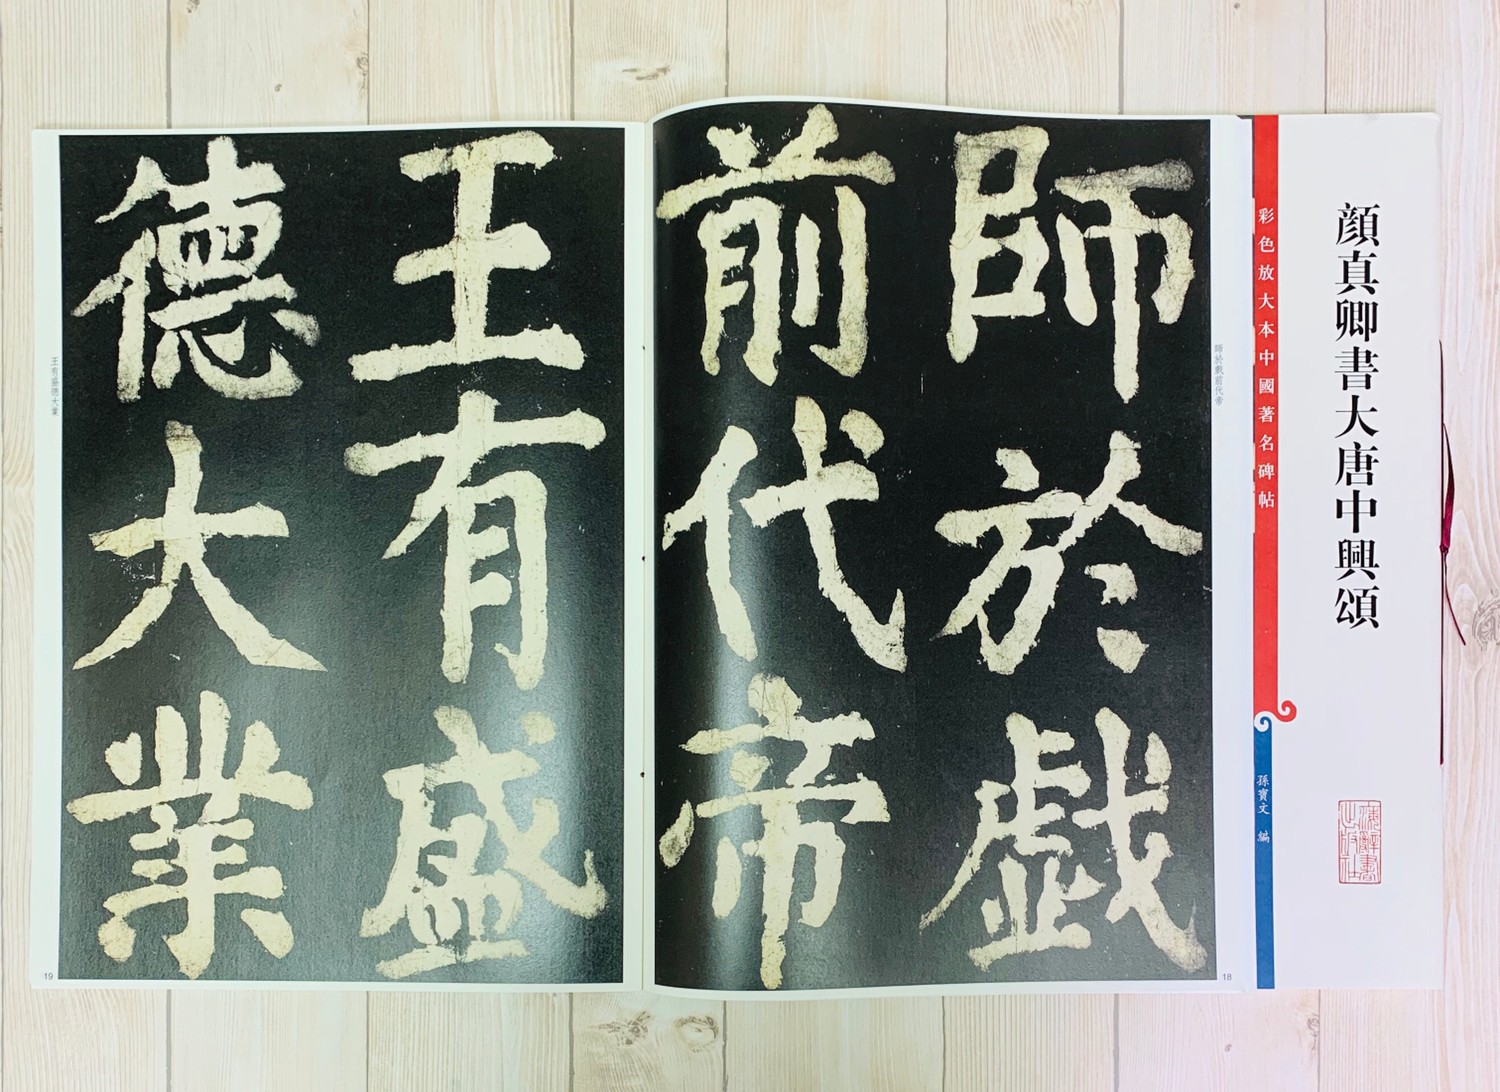 顔真卿書大唐中興頌
彩色放大本中國著名碑帖
孫寶文 編
海辭書
出版社
師於戲
前代帝
師於戲前代帝
18
王有盛
德大業
王有盛德大業
19